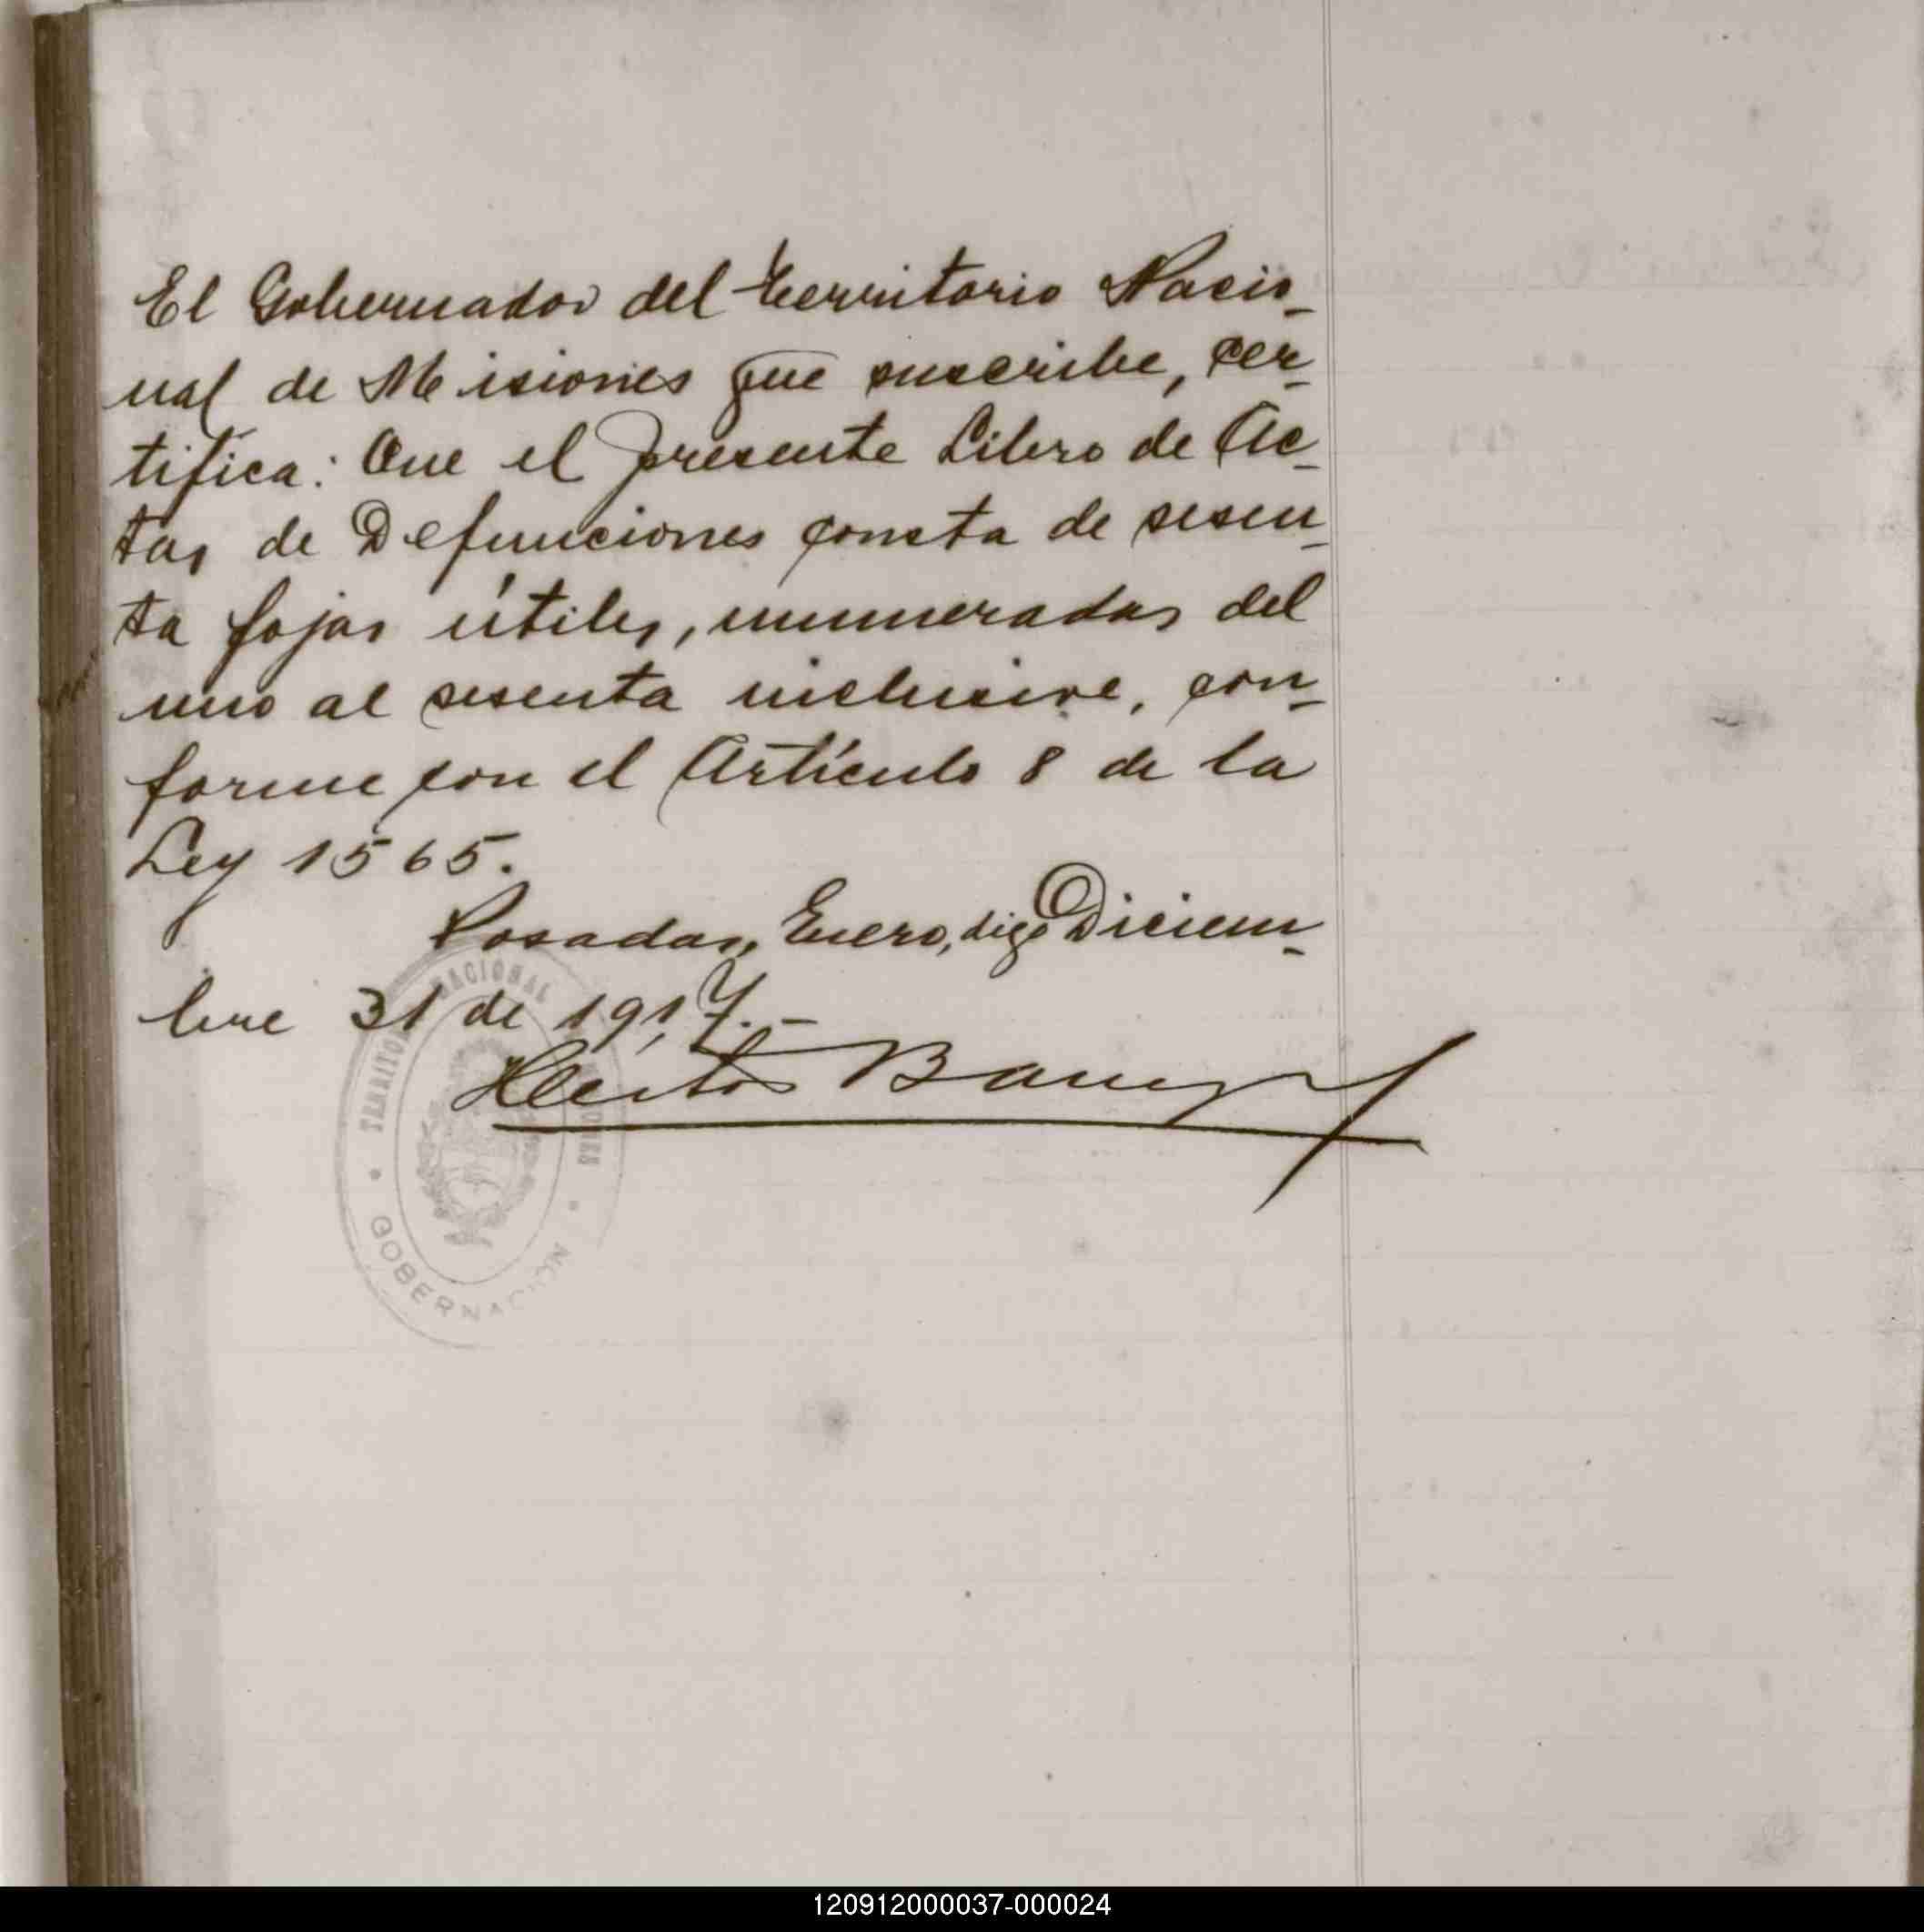 El Gobernador del Territorio Nacio-
nal de Misiones que suscribe, cer-
tifica: Que el presente Libro de Ac-
tas de Defunciones consta de sesen-
ta fojas útiles, numeradas del
uno al sesenta inclusive, con-
forme con el Artículo 8 de la
Ley 1565.
Posadas, Enero, digo Diciem-
bre 31 de 1917.-
TERRITORIO NACIONAL
GOBERNACION
120912000037-000024